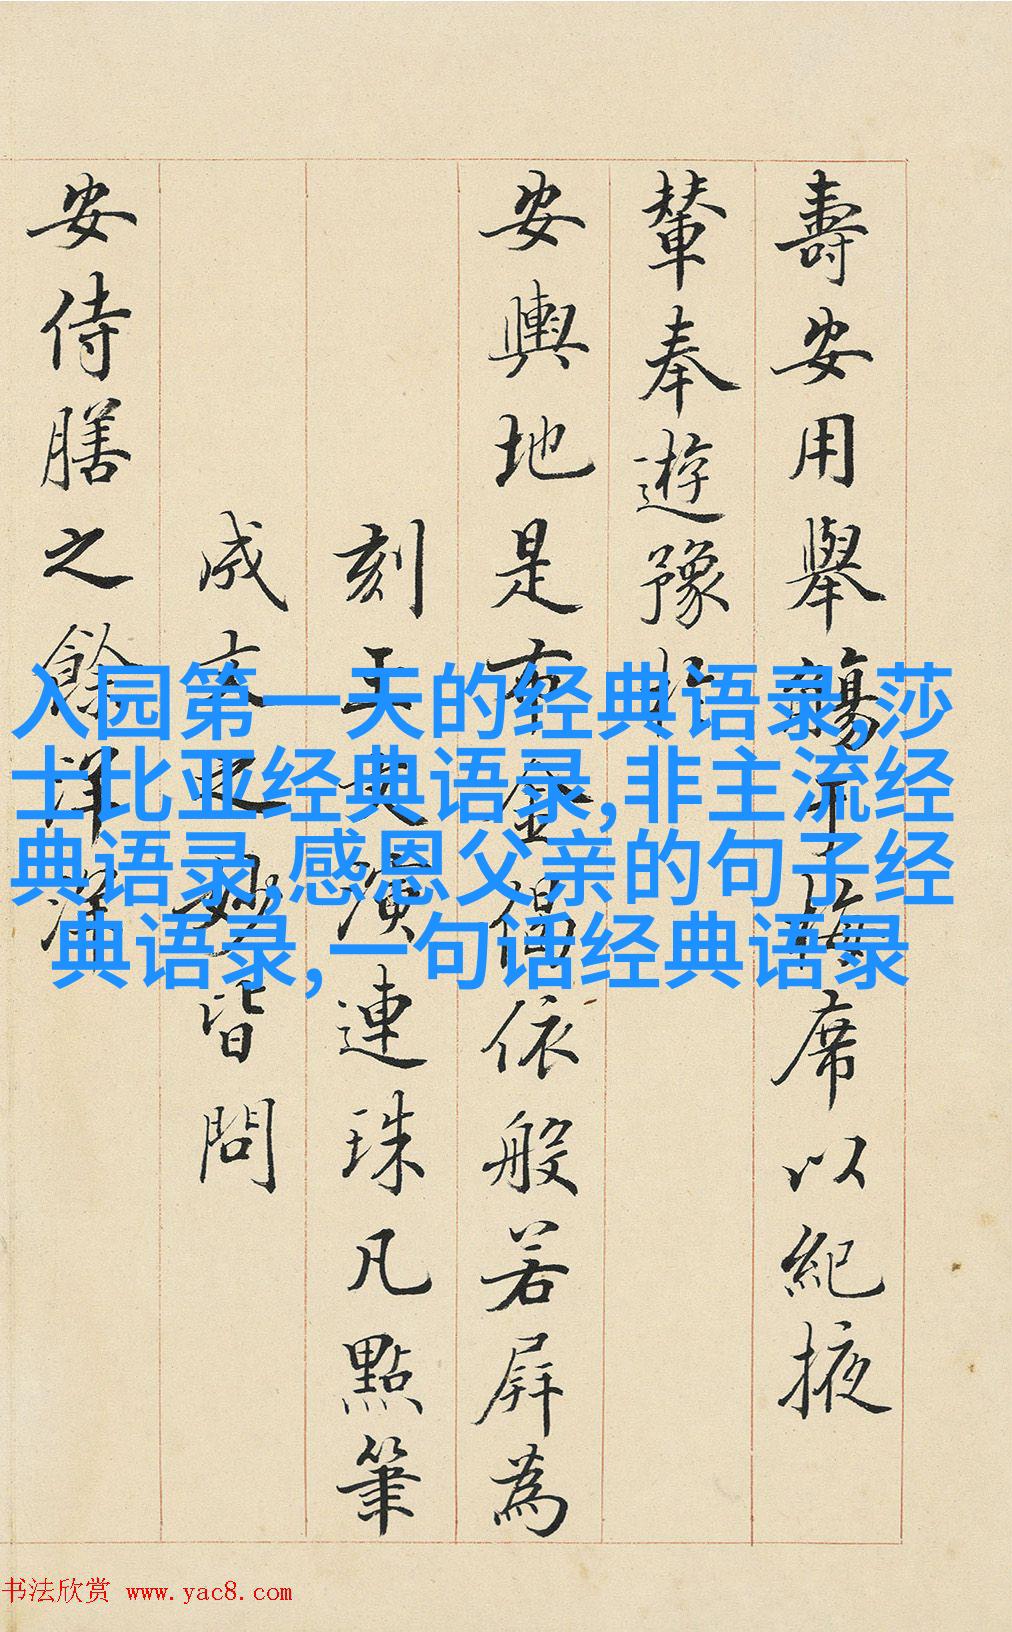 壽安用舉觴于梅席以紀掖
輦奉遊豫於
安輿地是布金偈依般若屏為
刻玉史演連珠凡點筆
成文之妙皆問
安侍膳之餘洋洋
入园第一天的经典语录,莎
士比亚经典语录,非主流经
典语录,感恩父亲的句子经
典语录,一句话经典语录
书法欣赏 www.yac8.com